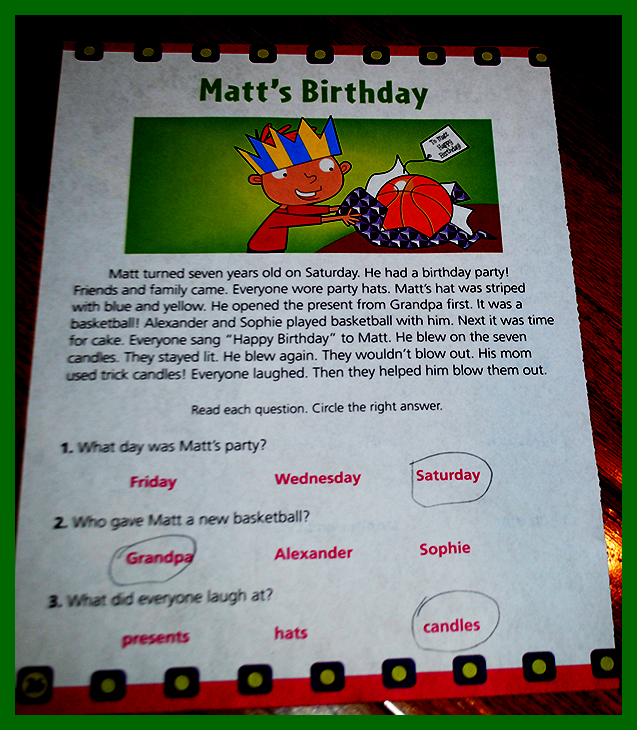 Matt's Birthday
To Matt
Happy
Birthday!
Matt turned seven years old on Saturday. He had a birthday party!
Friends and family came. Everyone wore party hats. Matt's hat was striped
with blue and yellow. He opened the present from Grandpa first. It was a
basketball! Alexander and Sophie played basketball with him. Next it was time
for cake. Everyone sang "Happy Birthday" to Matt. He blew on the seven
candles. They stayed lit. He blew again. They wouldn't blow out. His mom
used trick candles! Everyone laughed. Then they helped him blow them out.
Read each question. Circle the right answer.
1. What day was Matt's party?
Friday Wednesday Saturday
2. Who gave Matt a new basketball?
Grandpa Alexander Sophie
3. What did everyone laugh at?
presents hats candles